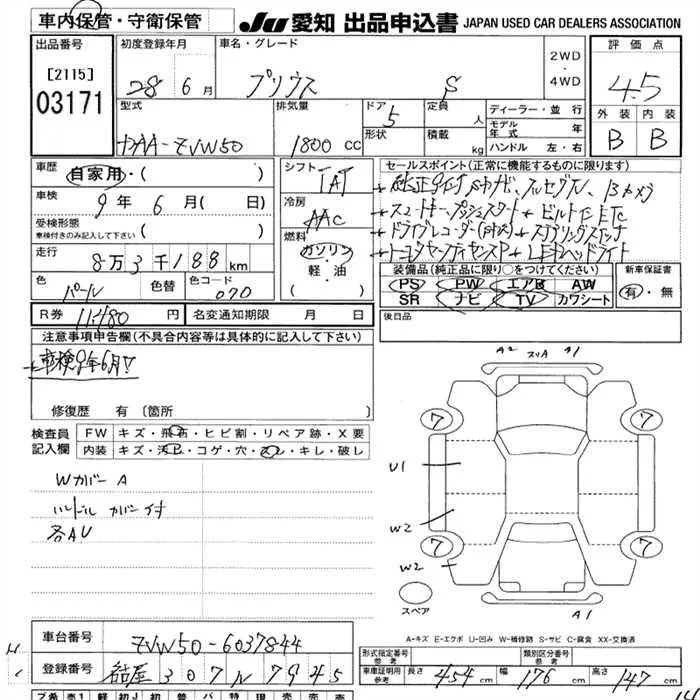 車内保管・守衛保管
JU 愛知 出品申込書 JAPAN USED CAR DEALERS ASSOCIATION
出品番号
[2115]
03171
初度登録年月
28年 6月
車名・グレード
プリウス S
2WD
・
4WD
評価点
4.5
外装 内装
B B
型式
DAA-ZVW50
排気量
1800 cc
ドア
5
形状
定員
人
積載
kg
ディーラー・並行
モデル年式 年
ハンドル 左・右
車歴
自家用・( )
車検
9年 6月( 日)
受検形態
車検付きのみ記入して下さい ( )
走行
8万3千188 km
色
パール
色替
色コード
070
シフト
IAT
冷房
AAC
燃料
ガソリン
・
軽・油
( )
セールスポイント(正常に機能するものに限ります)
+スマートキー、プッシュスタート +ビルトETC
+ドライブレコーダー
+トヨタセンサーティセンスP +LEDヘッドライト
装備品(純正品に限り○をつけてください)
PS PW エアB AW
SR ナビ TV カワシート
新車保証書
有・無
後日品
R券 11,180 円
名変通知期限 月 日
注意事項申告欄(不具合内容等は具体的に記入して下さい)
車検9年6月
修復歴 有 〔箇所
検査員記入欄
FW キズ・飛石・ヒビ割・リペア跡・X要
内装 キズ・汚レ・コゲ・穴・スレ・キレ・破し
Wカバー A
ハンドル カバー付
各AU
A2 スリA A1
7 7
U1
W2
7 7
W2
スペア
A1
A-キズ E-エクボ U-凹み W-補修跡 S-サビ C-腐食 XX-交換済
車台番号 ZVW50-6037844
登録番号 名古屋 307 ル 7945
形式指定番号
参考
類別区分番号
参考
車証証明用
参考
長さ 454 cm 幅 176 cm 高さ 147 cm